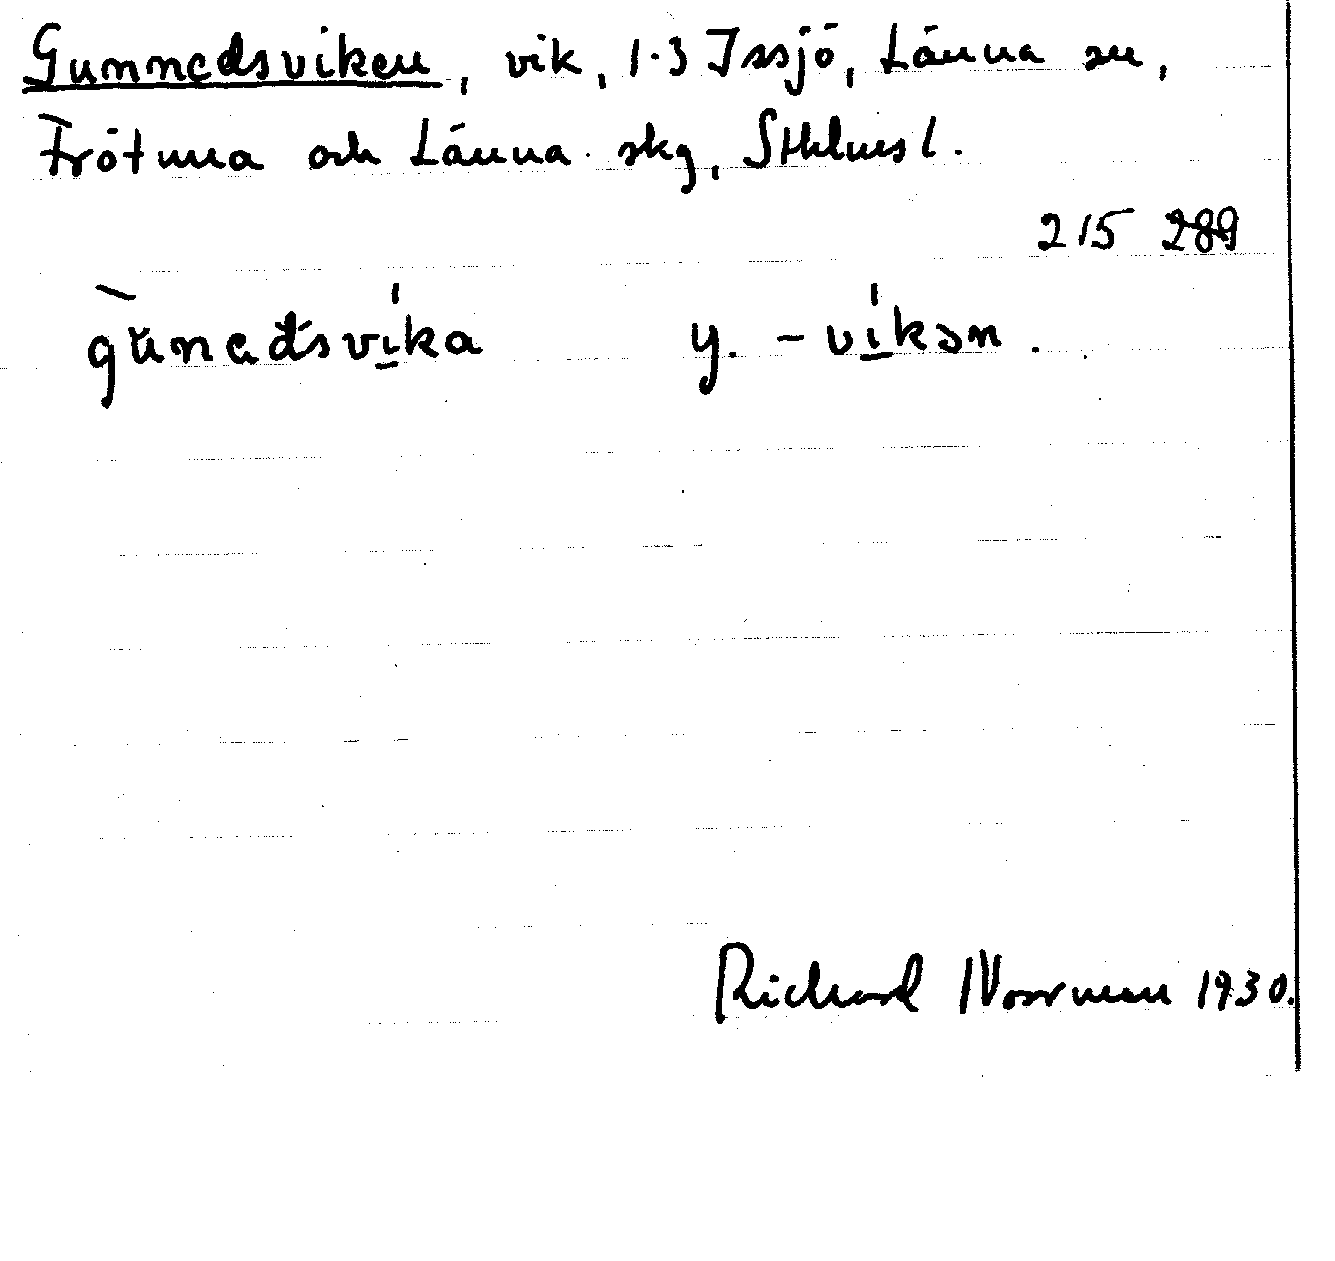 Gunnedsviken, vik, 1-3 Issjö, Länna sn,
Frötuna och Länna skg, Sthlms l.
215 289
gùnedsvíka y. -víkən.
Richard Norrman 1930.